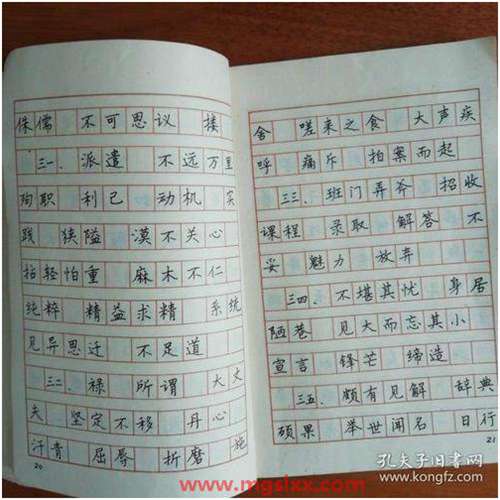 侏儒 不可思议 搂
三一、派遣 不远万里
殉职 利己 动机 实
践 狭隘 漠不关心
拈轻怕重 麻木不仁
纯粹 精益求精 系统
见异思迁 不足道
三二、禄 所谓 大丈
夫 坚定不移 丹心
汗青 屈辱 折磨 施
20
舍 嗟来之食 大声疾
呼 痛斥 拍案而起
三三、班门弄斧 招收
课程 录取 解答 不
妥 魅力 放弃
三四、不堪其忧 身居
陋巷 见大而忘其小
宣言 锋芒 缔造
三五、颇有见解 辞典
硕果 举世闻名 日行
21
孔夫子旧书网
www.mgslxx.com